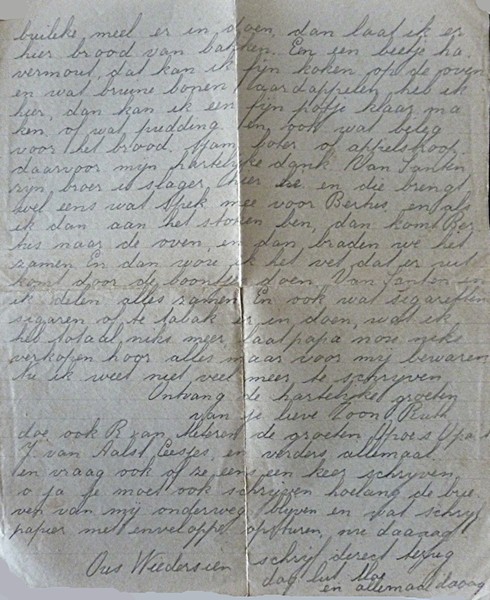 builtje meel er in doen, dan laat ik er
hier brood van bakken. En een beetje ha
vermout, dat kan ik fijn koken op de oven
en wat bruine bonen, aardappelen heb ik
hier, dan kan ik een fijn potje klaar ma
ken of wat pudding. en ook wat beleg
voor het brood. Jam boter of appelstroop
daarvoor mijn hartelijke dank. Van Santen
zijn broer is slager hier en die brengt
wel eens wat spek mee voor Berhes en als
ik dan aan het stoken ben, dan komt Ber
hes naar de oven, en dan braden we het
zamen. En dan word ik het vet dat er uit
komt door de boontjes doen. Van Santen en
ik delen alles zamen. En ook wat sigaretten
sigaren of te tabak er in doen, want ik
heb totaal niks meer, laat papa nou niks
verkopen hoor alles maar voor mij bewaren
Nu ik weet niet veel meer te schrijven
Ontvang de hartelijke groeten
van je lieve Zoon Ruth
doe ook R van Meteren de groeten, Opoe & Opa
J. van Aalst Eesjes, en verders allemaal
en vraag ook of ze eens een keer schrijven,
o ja je moet ook schrijven hoelang de brie
ven van mij onderweg blijven en wat schrijf
papier met enveloppe opsturen, nu daaag
schrijf direct terug
Ous Wiedersien dag lut Moe
en allemaal daaag